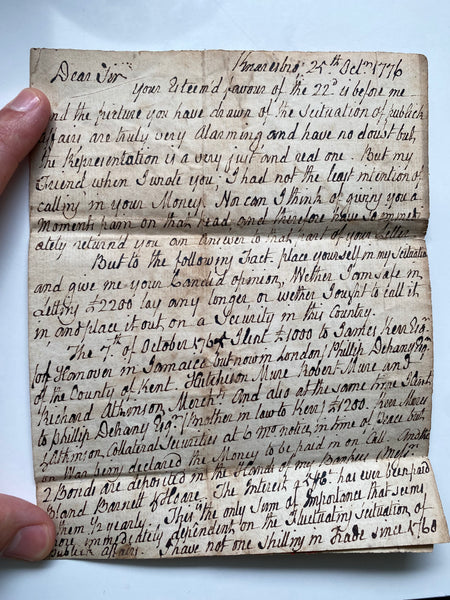 Knaresbro' 24th Octr 1776
Dear Sir
Your Esteem'd favour of the 22d. is before me
and the picture you have drawn of the scituation of publick
affairs are truly very Alarming and have no doubt but
the Representation is a very just and real one. But my
Friend when I wrote you, I had not the least intention of
calling in your Money. Nor can I think of giving you a
Moments pain on that head, and therefore have so immedi
ately returnd you an Answer to that part of your Letter
But to the following Fact, place yourself in my Scituation
and give me your Candid opinion, Wether I am safe in
Letting £2200 lay any longer or wether I ought to call it
in and place it out on a Security in this Country.
The 7th of October I lent £1000 to James Kerr Esqr
(of Hanover in Jamaica but now in London) Phillip Dehany Esqr
of the County of Kent Hutchison Mure Robert Mure and
Richard Atkinson Merchts And also at the same time I lent
to Phillip Dehany Esqr (Brother in law to Kerr) £1200. Kerr Mures
& Atkinson Collateral Securities at 6 mo notice in time of Peace but
on War being declared the Money to be paid in on Call.
2 Bonds are deposited in the Hands of my Bankers Messrs
Bland Barnett & Hoare. The Interest has ever been paid
them yearly. This is the only Sum of Importance that seems
more immediately dependent on the Fluctuating scituation of
Publick Affairs. I have not one shilling in Trade since 1760